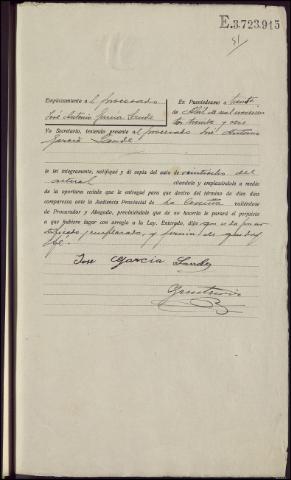 E.3.723.915
51
Emplazamiento a l procesado
José Antonio Garcia Lande
En Puentedeume a treinta
de Abril de mil novecien
tos treinta y seis
Yo Secretario, teniendo presente al procesado José Antonio
Garcia Lande
le leí íntegramente, notifiqué y dí copia del auto de veintiocho del
actual citándole y emplazándole a medio
de la oportuna cédula que le entregué para que dentro del término de diez días
comparezca ante la Audiencia Provincial de La Coruña valiéndose
de Procurador y Abogado, previniéndole que de no hacerlo le parará el perjuicio
a que hubiere lugar con arreglo a la Ley. Enterado, dijo que se da por no
tificado, emplazado, y firma de que doy
fé.
Jose Garcia Lande